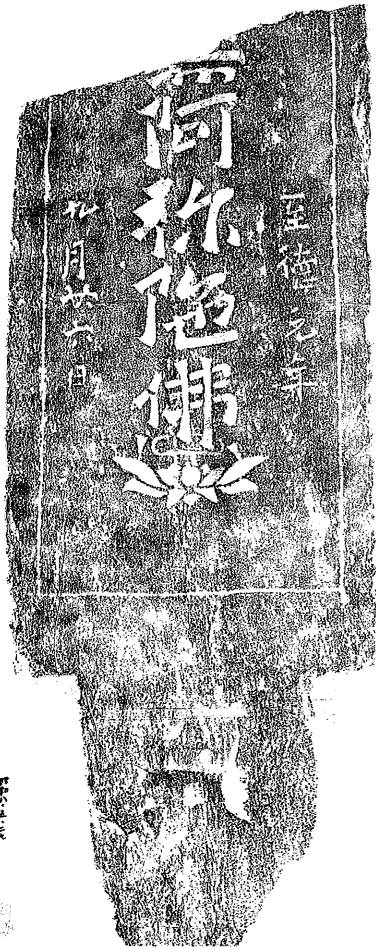 至徳元年
阿弥陀佛
九月廿六日